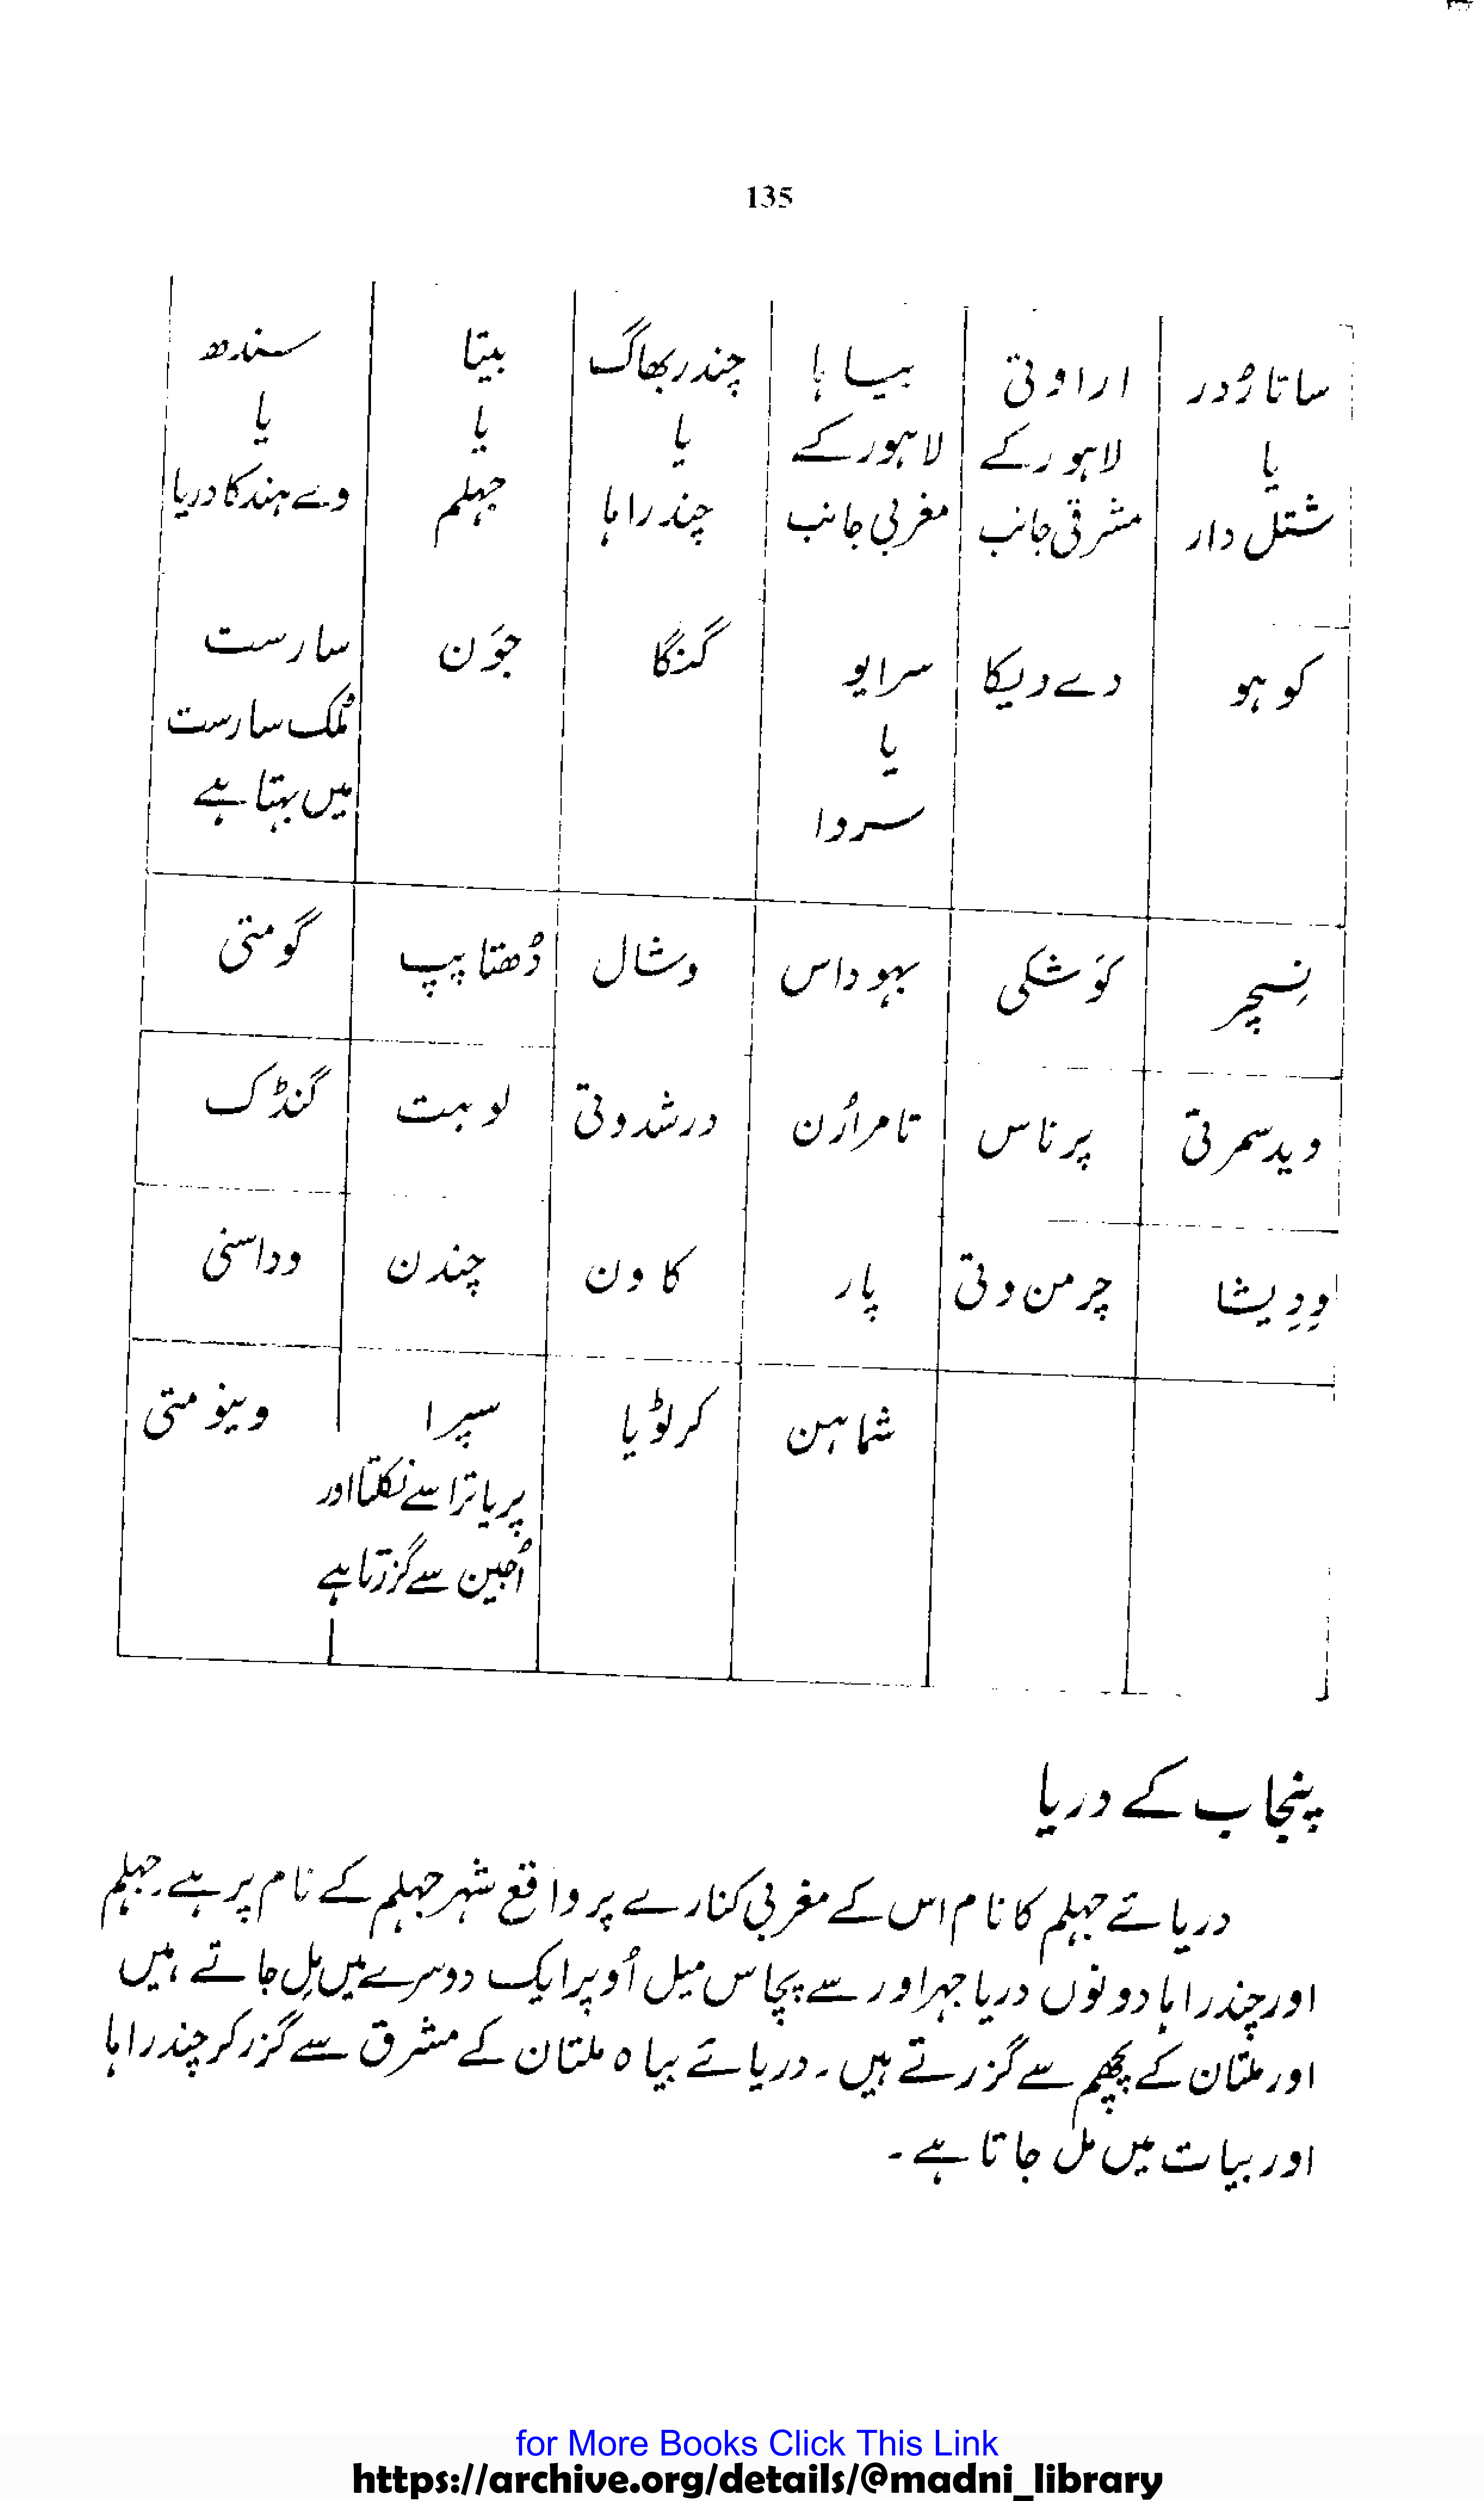 135
ساتارُدر | اراوتی | بیساہا | چندربھاگ | بیتا | سندھ
یا | لاہور کے | لاہور کے | یا | یا | یا
شتل دار | مشرقی جانب | مغربی جانب | چندراہا | جہلم | وے ہند کا دریا
کوہو | دے دیکا | سرایو | گنگا | جَوَن | سارست
یا | مُلک سارست
سروا | میں بہتا ہے
نِسچر | کَوشکی | بہوداس | وشال | دُھتاپپ | گومتی
ویدسمرتی | پرناس | تامراُرن | درشدوتی | لوہت | گنڈک
وِدِیشا | چرمن وتی | پار | کاون | چندن | وداسنی
شماہن | کرلوڈیا | سپرا | وینومتی
پریاترا سے نکلتا اور
اُجین سے گزرتا ہے
پنجاب کے دریا
دریائے جہلم کا نام اس کے مغربی کنارے پر واقع شہر جہلم کے نام پر ہے۔ جہلم
اور چندراہا دونوں دریا جہراور سے پچاس میل اُوپر ایک دوسرے میں مِل جاتے ہیں
اور ملتان کے پچھم سے گزرتے ہیں۔ دریائے بیاہ ملتان کے مشرق سے گزر کر چندراہا
اور بیات میں مل جاتا ہے۔
for More Books Click This Link
https://archive.org/details/@madni_library